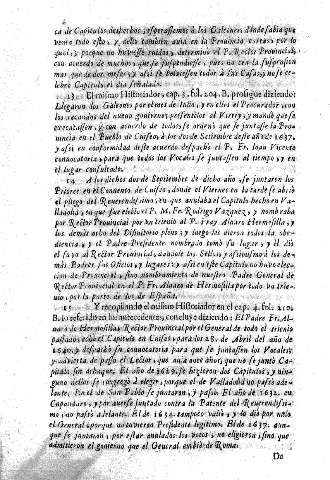 ca de Capitulos desechos, esperassemos à los Galeones donde sabia que
venia todo esto, y dello tambien avia en la Provincia cartas por lo
qual, y porque no huviesse ruidos, determinò el P. Rector Provincial,
con acuerdo de muchos, que se suspendiesse, pues no era la suspension
mas que de dos meses, y assi se bolviessen todos à sus Casas, y no se ce-
lebrò Capitulo el dia señalado.
13. El mismo Historiador, cap. 3. fol. 204. B. prosigue diziendo:
Llegaron los Galeones por el mes de Iulio, y en ellos el Procurador, con
los recaudos del nuevo govierno; presentòlos al Virrey, y mandò que se
executassen, y con acuerdo de todos se ordenò que se juntasse la Pro-
vincia en el Pueblo de Cuiseo, à los dos de Setiembre deste año de 1637.
y assi en conformidad deste acuerdo despachò el P. Fr. Ioan Vicente
convocatoria, para que todos los Vocales se juntassen al tiempo, y en
el lugar consultado.
14. A los dichos dos de Septiembre de dicho año, se juntaron los
Priores en el Convento de Cuiseo, donde el Viernes en la tarde se abriò
el pliego del Reverendissimo, en que anulaba el Capitulo hecho en Va-
lladolid, en que fue electo el P. M. Fr. Rodrigo Vazquez, y nombraba
por Rector Provincial por un trienio al P. Fray Alvaro Hermosilla, y
los demàs actos del Difinitorio plenos, y luego les dieron todos la obe-
diencia, y el Padre Presidente nombrado tomò su lugar, y el dia
el sayo al Rector Provincial, dandole los Sellos, y assi los usaron los de-
màs Padres sus Oficios, y lugares, y assi en este Capitulo no huvo elec-
cion de Provincial, sino nombramiento de nuestro Padre General de
Rector Provincial en el P. Fr. Alvaro de Hermosilla por todo un trie-
nio, por la parte de los de España.
15. Y recopilando el mismo Historiador en el cap. 4. fol. 210.
B. lo referido en los antecedentes, concluye diziendo: El Padre Fr. Al-
varo de Hermosilla, Rector Provincial por el General de todo el trienio
passado, celebrò Capitulo en Cuiseo, para los 28. de Abril del año de
1640. y despachò su convocatoria para que se juntassen los Vocales;
y advierta de passo el Lector, que avia siete años, que no se juntò Ca-
pitulo sin achaque. El año de 1629. se hizieron dos Capitulos, y nin-
guno dellos se congregò à elegir, porque el de Valladolid no passò ade-
lante. En el de San Pablo se juntaron, y passò. El año de 1632. en
Capacuaro, y por averse juntado contra la Patente del Reverendissi-
mo, no passò adelante. El de 1634. tampoco valiò, y lo diò por nulo
el General, porque no tuvo su Presidente legitimo. El de 1637. aun-
que se juntaron, por estar anulados los votos, no eligieron, sino que
admitieron el govierno que el General embiò de Roma.
De